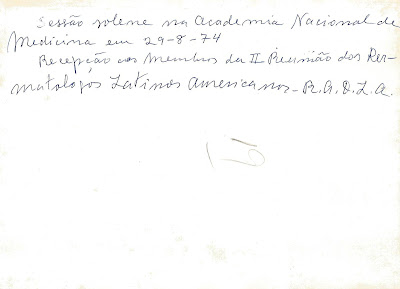 Sessão solene na Academia Nacional de
Medicina em 29-8-74
Recepção aos membros da II Reunião dos Der-
matologos Latinos Americanos - R.A.D.L.A.